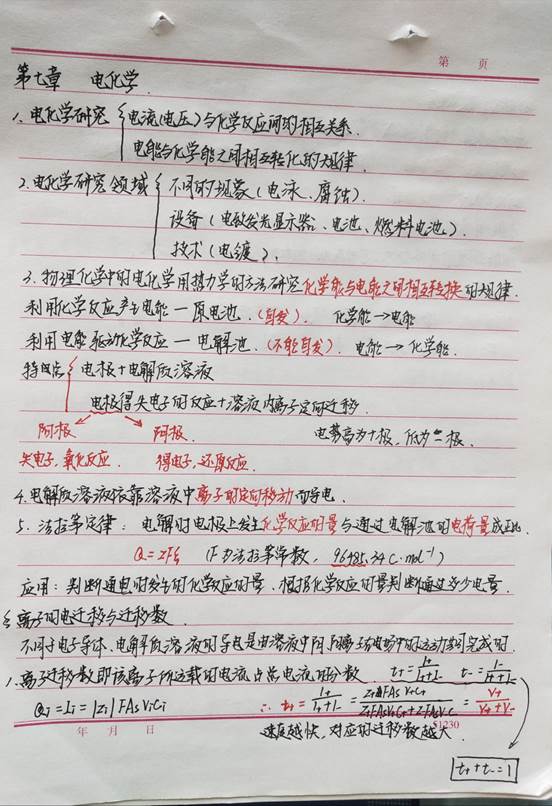 第 页
第七章 电化学.
1. 电化学研究 { 电流(电压)与化学反应间的相互关系.
电能与化学能之间相互转化的规律.
2. 电化学研究领域 { 不同的现象(电泳、腐蚀).
设备(电致发光显示器、电池、燃料电池).
技术(电镀).
3. 物理化学中的电化学用热力学的方法研究化学能与电能之间相互转换的规律.
利用化学反应产生电能—原电池.(自发). 化学能→电能
利用电能驱动化学反应—电解池.(不能自发). 电能→化学能.
特点 { 电极+电解质溶液
电极得失电子的反应+溶液内离子定向迁移.
阳极 阴极. 电势高为+极,低为一极.
失电子,氧化反应. 得电子,还原反应.
4. 电解质溶液依靠溶液中离子的定向移动而导电.
5. 法拉第定律: 电解时电极上发生化学反应的量与通过电解池的电荷量成正比.
Q=zFξ (F为法拉第常数, 96485.34 C·mol⁻¹)
应用: 判断通电时发生的化学反应的量、根据化学反应的量判断通过多少电量.
离子的电迁移与迁移数.
不同于电子导体,电解质溶液的导电是由溶液中阴阳离子在电场中的运动共同完成的.
1. 离子迁移数即该离子所运载的电流占总电流的分数. t₊=I₊/(I₊+I₋) t₋=I₋/(I₊+I₋)
Qᵢ=Iᵢ=|zᵢ|FAsVᵢCᵢ ∴ t₊=I₊/(I₊+I₋)=z₊FAsV₊C₊/(z₊FAsV₊C₊+z₋FAsV₋C₋)=V₊/(V₊+V₋)
年 月 日 51230
速度越快,对应的迁移数越大.
t₊+t₋=1